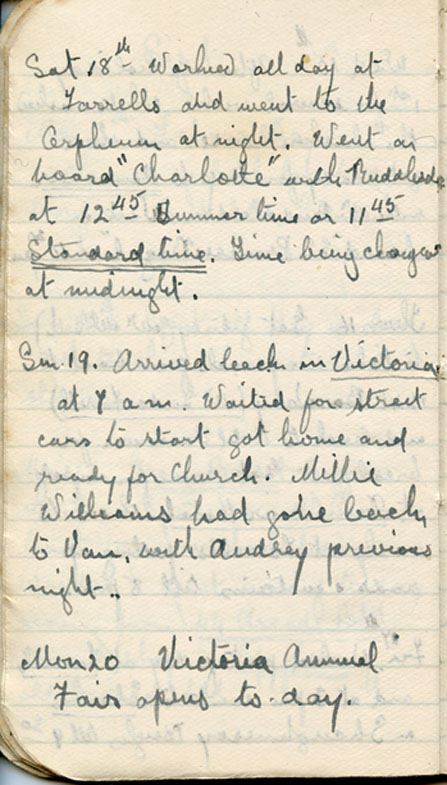 Sat 18th Worked all day at
Farrells and went to the
Orpheum at night. Went on
board "Charlotte" with
at 12 45 Summer time or 11 45
Standard time. Time being changed
at midnight.
Sun. 19. Arrived back in Victoria
at 7 a m. Waited for street
cars to start got home and
ready for Church. Millie
Williams had gone back
to Van. with Audrey previous
night..
Mon 20 Victoria Annual
Fair opens to-day.